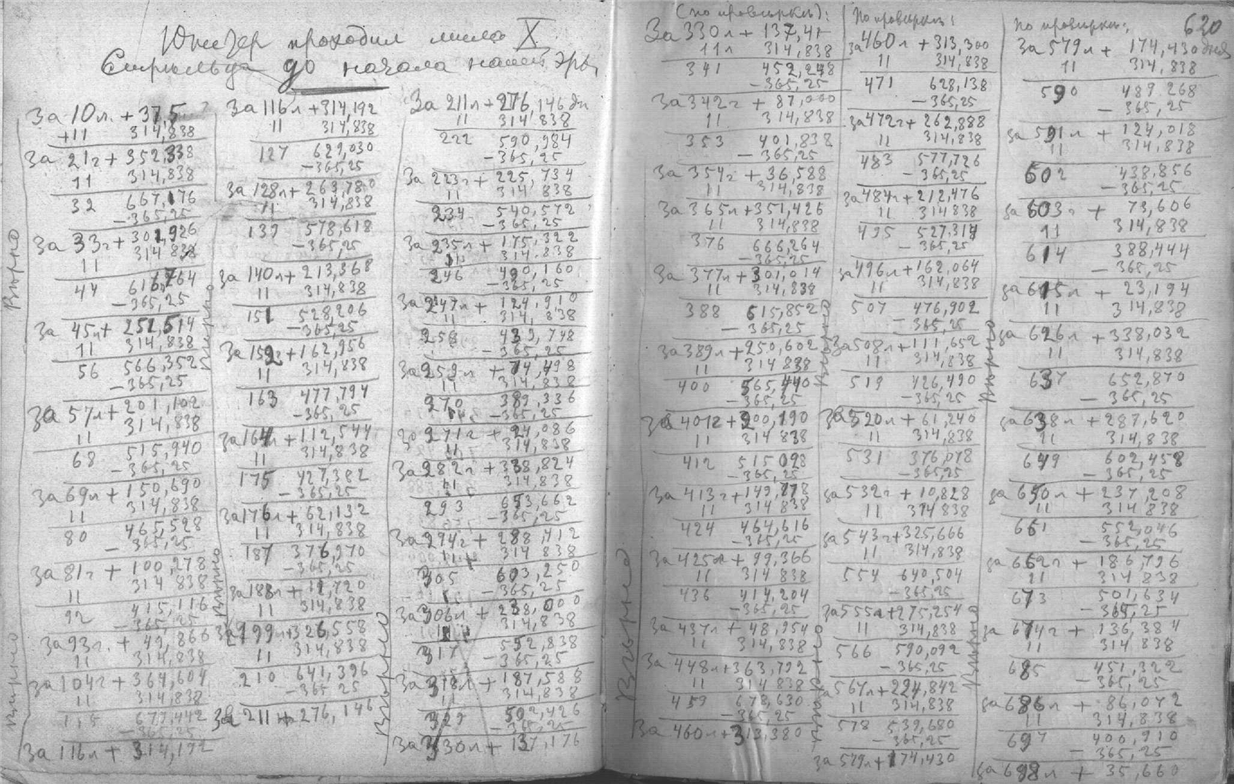 Юпитер проходил мимо X
Стрельца до начала нашей Эры
За 10 л. + 37,5
+11 314,838
За 21 г + 352,338
11 314,838
32 667,176
– 365,25
За 33 г + 301,926
11 314,838
44 616,764
– 365,25
За 45 л + 251,514
11 314,838
56 566,352
– 365,25
За 57 л + 201,102
11 314,838
68 515,940
– 365,25
За 69 л + 150,690
11 314,838
80 465,528
– 365,25
За 81 г + 100,278
11 314,838
92 415,116
– 365,25
За 93 г + 49,866
11 314,838
За 104 г + 364,604
11 314,838
115 677,442
– 365,25
За 116 л + 314,192
Вѣрно
Вѣрно
За 116 л + 314,192
11 314,838
127 629,030
– 365,25
За 128 л + 263,780
11 314,838
139 578,618
– 365,25
За 140 л + 213,368
11 314,838
151 528,206
– 365,25
За 152 г + 162,956
11 314,838
163 477,794
– 365,25
За 164 г + 112,544
11 314,838
175 427,382
– 365,25
За 176 л + 62,132
11 314,838
187 376,970
– 365,25
За 188 л + 11,720
11 314,838
199 л + 326,558
11 314,838
210 641,396
– 365,25
За 211 л + 276,146
Вѣрно
Вѣрно
За 211 л + 276,146 дн
11 314,838
222 590,984
– 365,25
За 223 г + 225,734
11 314,838
234 540,572
– 365,25
За 235 л + 175,322
11 314,838
246 490,160
– 365,25
За 247 л + 124,910
11 314,838
258 439,748
– 365,25
За 259 л + 74,498
11 314,838
270 389,336
– 365,25
За 271 г + 24,086
11 314,838
За 282 г + 338,824
11 314,838
293 653,662
– 365,25
За 294 г + 288,412
11 314,838
305 603,250
– 365,25
За 306 л + 238,000
11 314,838
317 552,838
– 365,25
За 318 л + 187,588
11 314,838
329 502,426
– 365,25
За 330 л + 137,176
Вѣрно
(По провѣркѣ):
За 330 л + 137,41
11 л 314,838
341 452,248
– 365,25
За 342 г + 87,000
11 314,838
353 401,838
– 365,25
За 354 г + 36,588
11 314,838
За 365 л + 351,426
11 314,838
376 666,264
– 365,25
За 377 л + 301,014
11 314,838
388 615,852
– 365,25
За 389 л + 250,602
11 314,838
400 565,440
– 365,25
За 401 г + 200,190
11 314,838
412 515,028
– 365,25
За 413 г + 149,778
11 314,838
424 464,616
– 365,25
За 425 л + 99,366
11 314,838
436 414,204
– 365,25
За 437 л + 48,954
11 314,838
За 448 л + 363,792
11 314,838
459 678,630
– 365,25
За 460 л + 313,380
Вѣрно
Вѣрно
По провѣркѣ:
За 460 л + 313,300
11 314,838
471 628,138
– 365,25
За 472 г + 262,888
11 314,838
483 577,726
– 365,25
За 484 г + 212,476
11 314,838
495 527,314
– 365,25
За 496 л + 162,064
11 314,838
507 476,902
– 365,25
За 508 л + 111,652
11 314,838
519 426,490
– 365,25
За 520 л + 61,240
11 314,838
531 376,078
– 365,25
За 532 г + 10,828
11 314,838
За 543 г + 325,666
11 314,838
554 640,504
– 365,25
За 555 л + 275,254
11 314,838
566 590,092
– 365,25
За 567 л + 224,842
11 314,838
578 539,680
– 365,25
За 579 л + 174,430
Вѣрно
Вѣрно
По провѣркѣ:
620
За 579 л + 174,430 дня
11 314,838
590 489,268
– 365,25
За 591 г + 124,018
11 314,838
602 438,856
– 365,25
За 603 г + 73,606
11 314,838
614 388,444
– 365,25
За 615 л + 23,194
11 314,838
За 626 л + 338,032
11 314,838
637 652,870
– 365,25
За 638 л + 287,620
11 314,838
649 602,458
– 365,25
За 650 л + 237,208
11 314,838
661 552,046
– 365,25
За 662 г + 186,796
11 314,838
673 501,634
– 365,25
За 674 г + 136,384
11 314,838
685 451,222
– 365,25
За 686 л + 86,072
11 314,838
697 400,910
– 365,25
За 698 л + 35,660
Вѣрно
Вѣрно